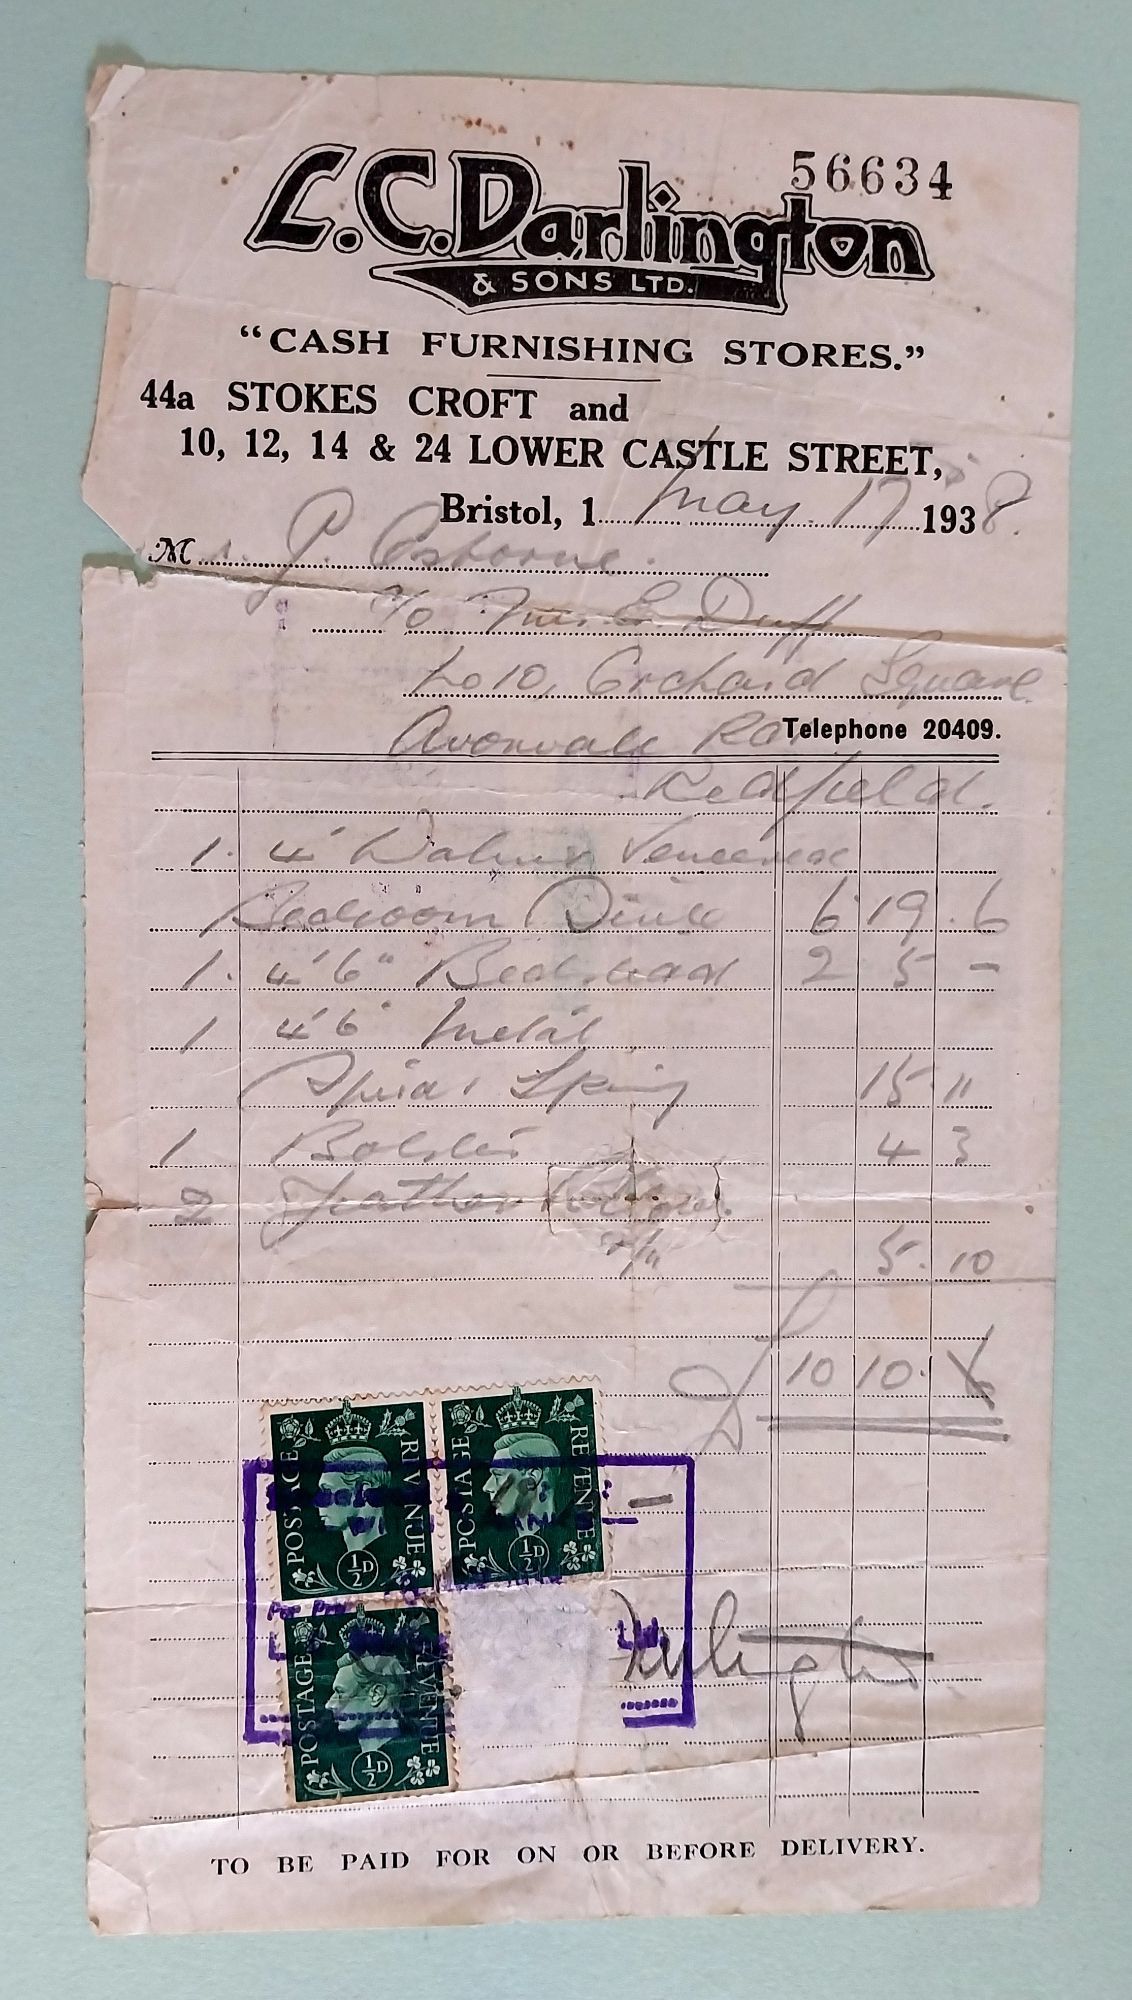 56634
L.C. Darlington
& SONS LTD.
“CASH FURNISHING STORES.”
44a STOKES CROFT and
10, 12, 14 & 24 LOWER CASTLE STREET,
Bristol, 1 May 17 1938.
M Osborne.
c/o Mrs. E. Duff
No 10, Orchard Square
Avonvale Rd
Telephone 20409.
Redfield.
1. 4' Walnut Veneered
Bedroom Suite 6 19. 6
1. 4'6" Bedstead 2 5 -
1 4'6" Metal
Spiral Spring 15 "
1 Bolster 4 3
2 Feather Pillows.
5. 10
£ 10 10.
POSTAGE REVENUE
½D
POSTAGE REVENUE
½D
Ltd
Darlington
POSTAGE REVENUE
½D
TO BE PAID FOR ON OR BEFORE DELIVERY.